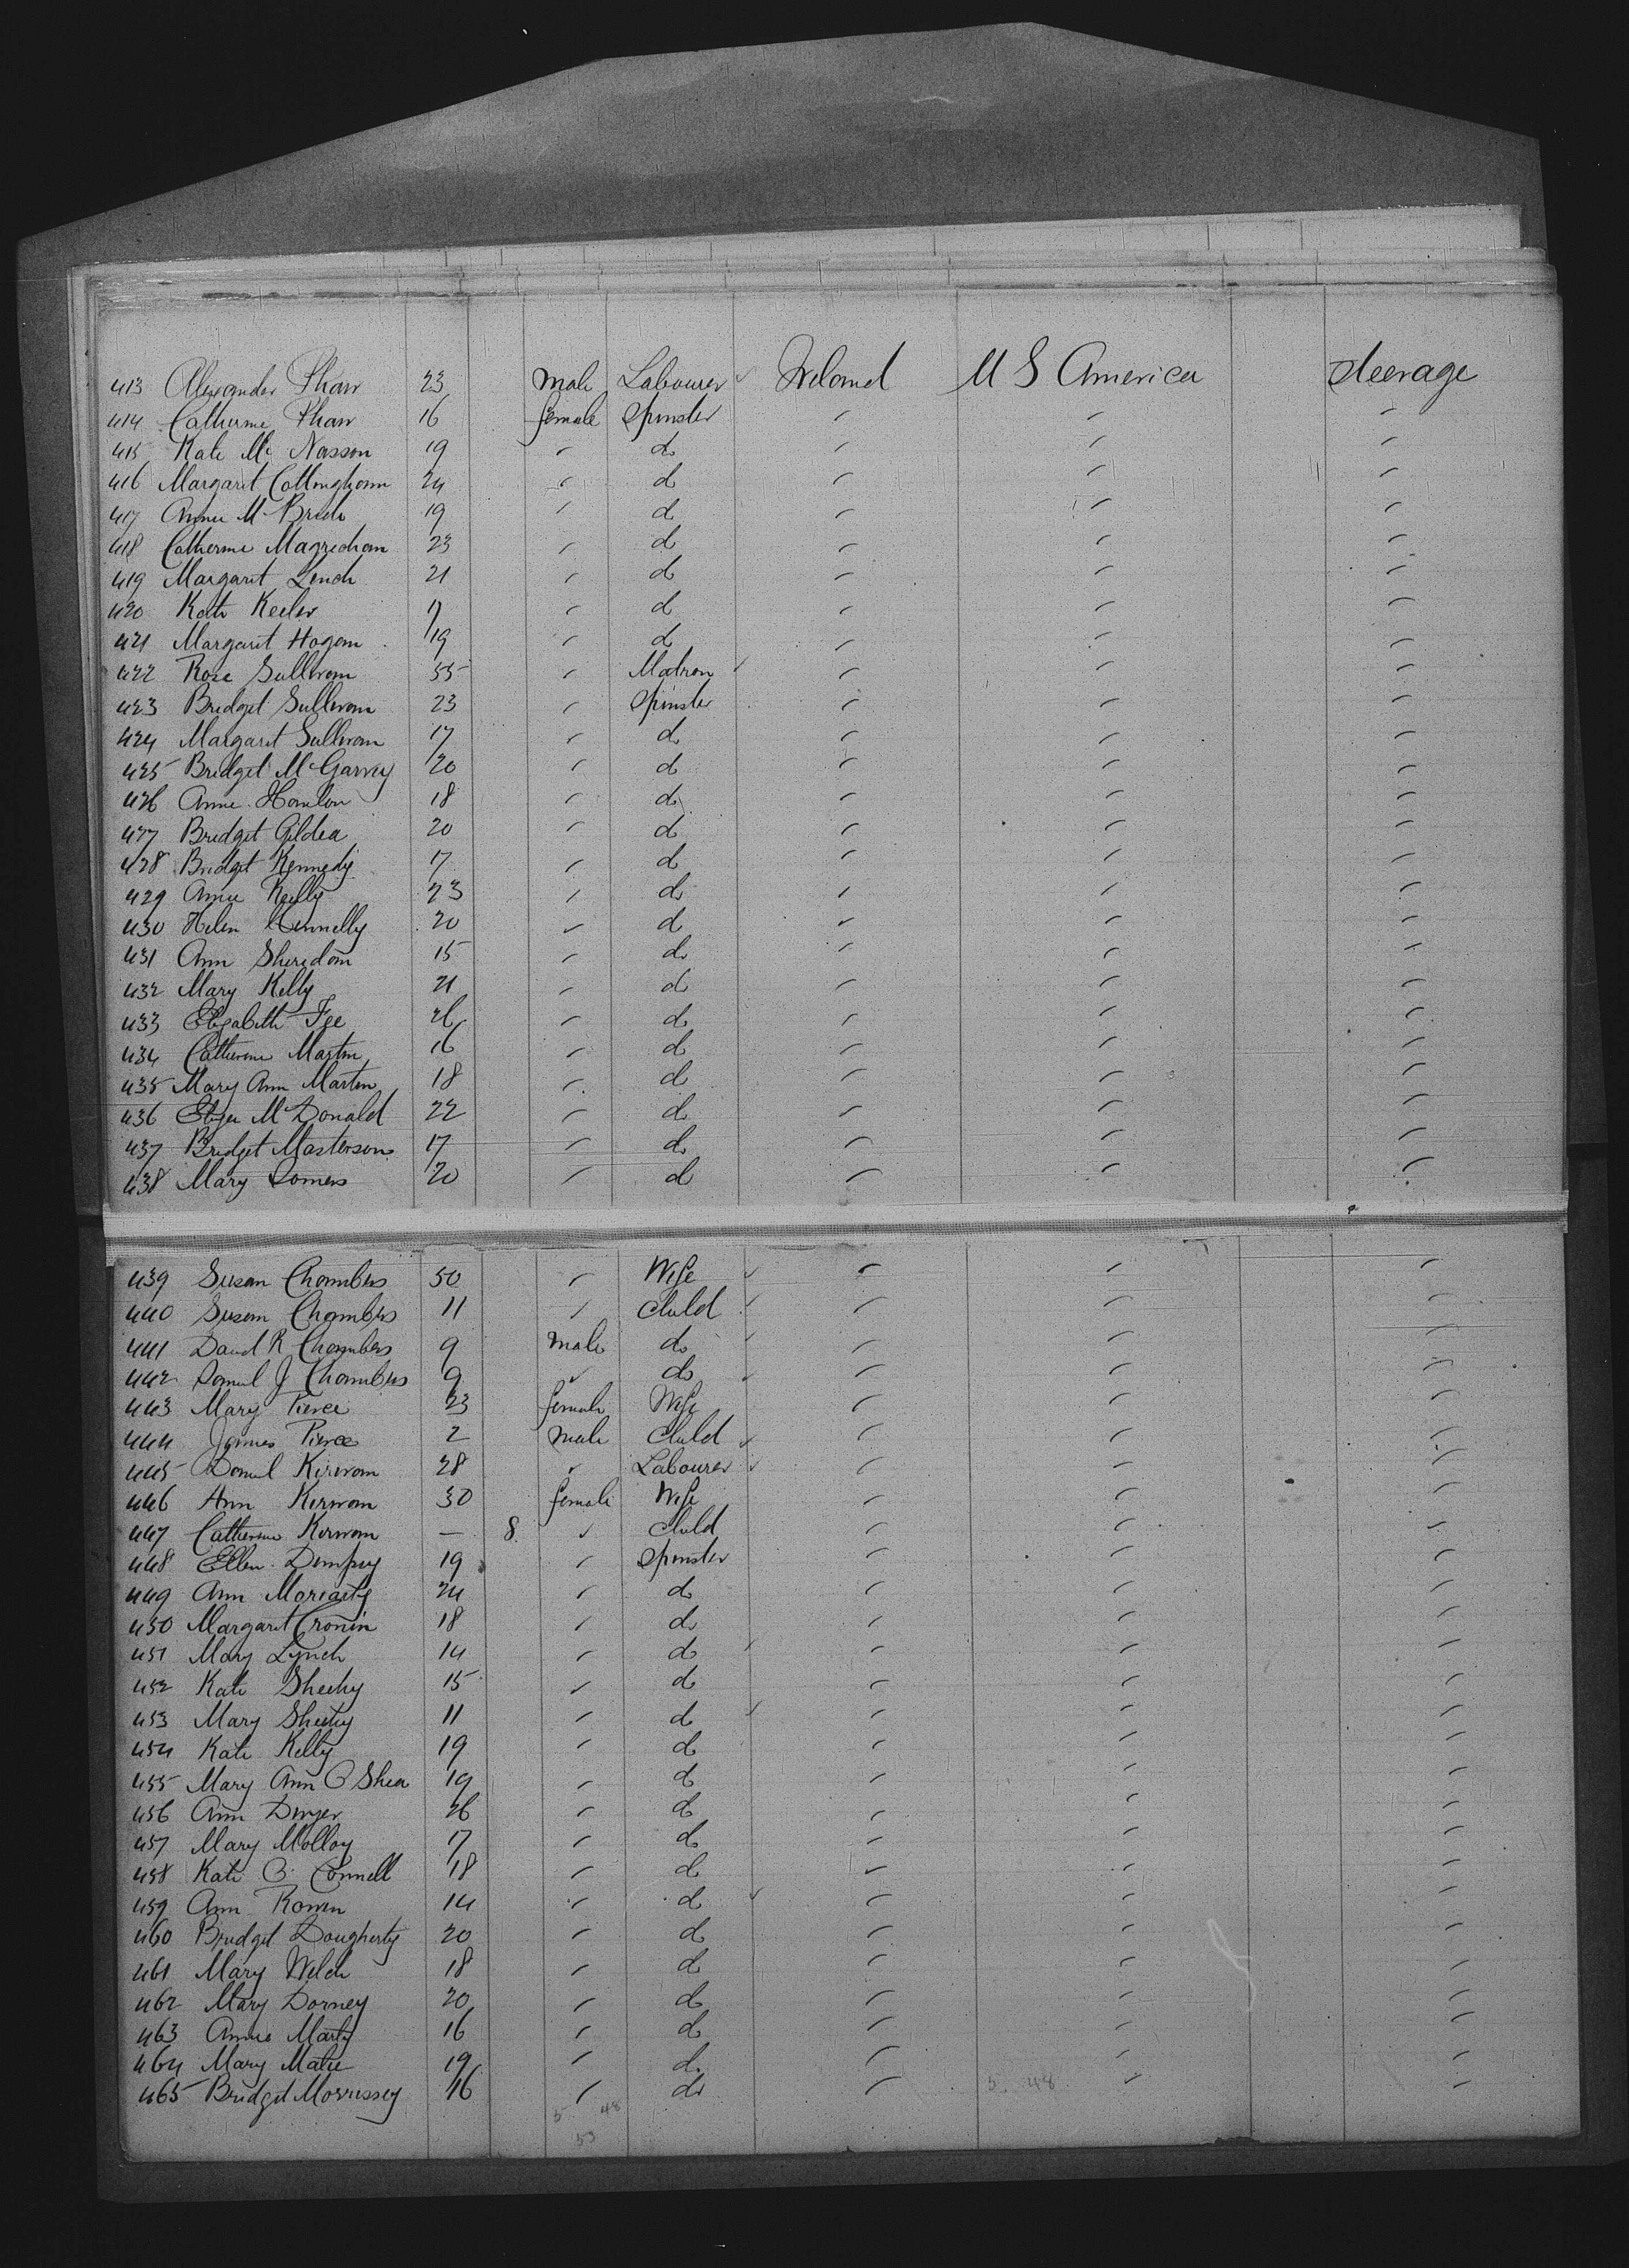 413 Alexander Shaw 23 Male Labourer Ireland U S America Steerage
414 Catherine Shaw 16 female Spinster " " "
415 Kate Mc Nasson 19 " do " " "
416 Margaret Cottingham 24 " do " " "
417 Annie McBride 19 " do " " "
418 Catherine 23 " do " " "
419 Margaret Lench 21 " do " " "
420 Kate Keeler 17 " do " " "
421 Margaret Hogan 19 " do " " "
422 Rose Sullivan 55 " Matron " " "
423 Bridget Sullivan 23 " Spinster " " "
424 Margaret Sullivan 17 " do " " "
425 Bridget McGarvey 20 " do " " "
426 Anne Hanlon 18 " do " " "
427 Bridget Gildea 20 " do " " "
428 Bridget Kennedy 17 " do " " "
429 Annie Reilly 23 " do " " "
430 Helen Kennelly 20 " do " " "
431 Ann Sheridan 15 " do " " "
432 Mary Kelly 21 " do " " "
433 Elizabeth Fee 26 " do " " "
434 Catherine Martin 16 " do " " "
435 Mary Ann Martin 18 " do " " "
436 Eliza McDonald 22 " do " " "
437 Bridget Masterson 17 " do " " "
438 Mary Somers 20 " do " " "
439 Susan Chambers 50 " Wife " " "
440 Susan Chambers 11 " Child " " "
441 David R Chambers 9 Male do " " "
442 Samul J Chambers 9 " do " " "
443 Mary Pierce 23 female Wife " " "
444 James Pierce 2 Male Child " " "
445 Daniel Kirwan 28 " Labourer " " "
446 Ann Kirwan 30 female Wife " " "
447 Catherine Kirwan — 8 " Child " " "
448 Ellen Dempsey 19 " Spinster " " "
449 Ann Moriarty 24 " do " " "
450 Margaret Cronin 18 " do " " "
451 Mary Lynch 14 " do " " "
452 Kate Sheehy 15 " do " " "
453 Mary Sheehy 11 " do " " "
454 Kate Kelly 19 " do " " "
455 Mary Ann O Shea 19 " do " " "
456 Ann Dwyer 26 " do " " "
457 Mary Molloy 17 " do " " "
458 Kate O Connell 18 " do " " "
459 Ann Rowen 14 " do " " "
460 Bridget Dougherty 20 " do " " "
461 Mary Welch 18 " do " " "
462 Mary Dorney 20 " do " " "
463 Annie Marty 16 " do " " "
464 Mary 19 " do " " "
465 Bridget Morrissey 16 " do " " "
5 48 5 48
53